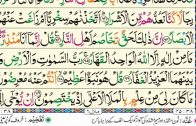 كُنَّا نَعُدُّهُمْ مِّنَ الْاَشْرَارِ اَتَّخَذْنٰهُمْ سِخْرِيًّا اَمْ زَاغَتْ عَنْهُمُ
الْاَبْصَارُ اِنَّ ذٰلِكَ لَحَقٌّ تَخَاصُمُ اَهْلِ النَّارِ قُلْ اِنَّمَاۤ اَنَا مُنْذِرٌ
وَّمَا مِنْ اِلٰهٍ اِلَّا اللّٰهُ الْوَاحِدُ الْقَهَّارُ رَبُّ السَّمٰوٰتِ وَالْاَرْضِ وَ
مَا بَيْنَهُمَا الْعَزِيْزُ الْغَفَّارُ قُلْ هُوَ نَبَؤٌا عَظِيْمٌ اَنْتُمْ عَنْهُ مُعْرِضُوْنَ
مَا كَانَ لِيَ مِنْ عِلْمٍۭ بِالْمَلَاِ الْاَعْلٰۤى اِذْ يَخْتَصِمُوْنَ اِنْ يُّوْحٰۤى اِلَيَّ